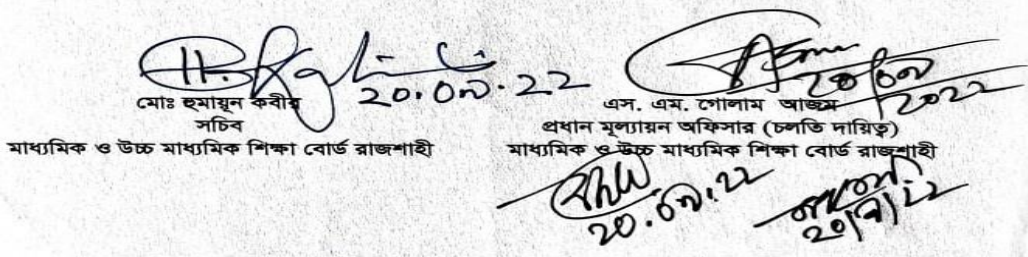 ২০.০৭.২২
মোঃ হুমায়ূন কবীর
সচিব
মাধ্যমিক ও উচ্চ মাধ্যমিক শিক্ষা বোর্ড রাজশাহী
২০/০৭/২০২২
এস. এম. গোলাম আজম
প্রধান মূল্যায়ন অফিসার (চলতি দায়িত্ব)
মাধ্যমিক ও উচ্চ মাধ্যমিক শিক্ষা বোর্ড রাজশাহী
২০.০৭.২২
২০/৭/২২